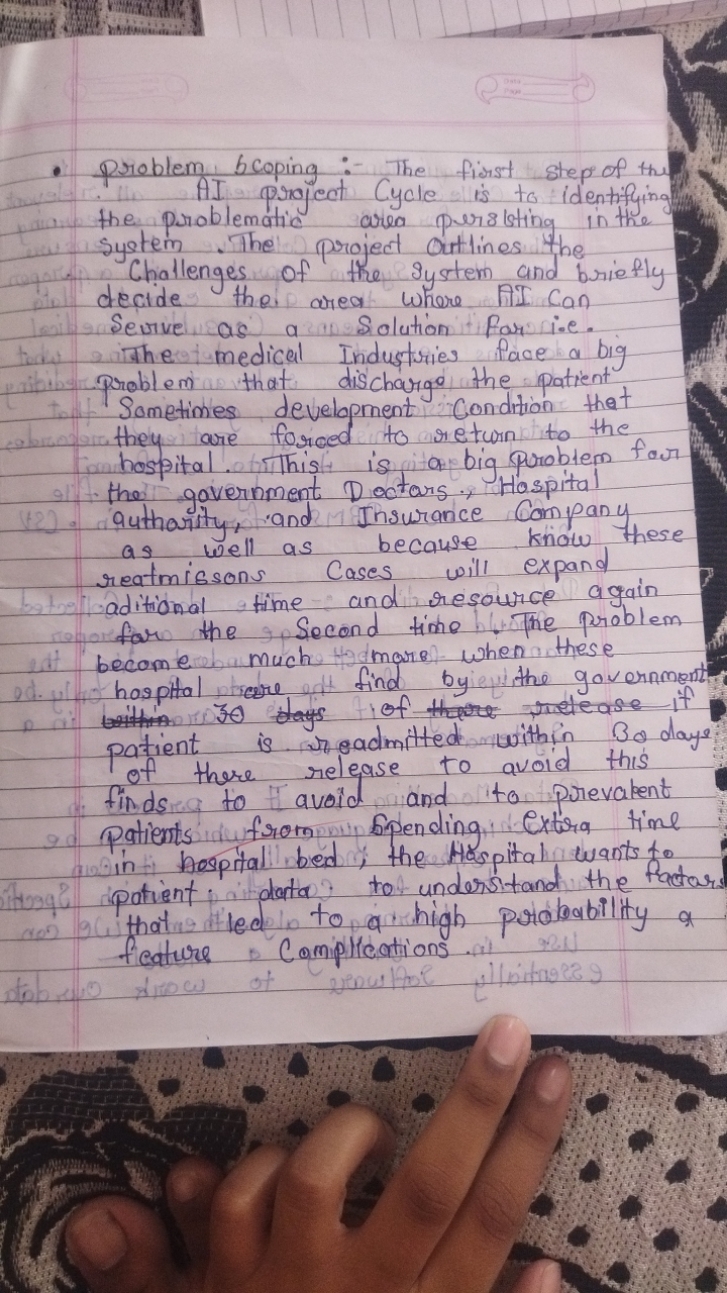 • problem scoping :- The first step of the
AI project Cycle is to identifying
the problematic area persisting in the
system. The project outlines the
Challenges of the system and briefly
decide the area where AI can
Serve as a Solution for i.e.
The medical Industries face a big
problem that discharge the patient
Sometimes development Condition that
they are forced to return to the
hospital. This is a big problem for
the government Doctors, Hospital
authority, and Insurance Company
as well as because know these
reatmissons Cases will expand
aditional time and resource again
for the Second time. The problem
become much more when these
hospital are find by the government
within 30 days of there release if
patient is readmitted within 30 days
of there release to avoid this
finds to avoid and to prevalent
patients from Spending extra time
in hospital bed, the Hospital wants to
patient data to understand the factors
that led to a high probability a
feature Complications